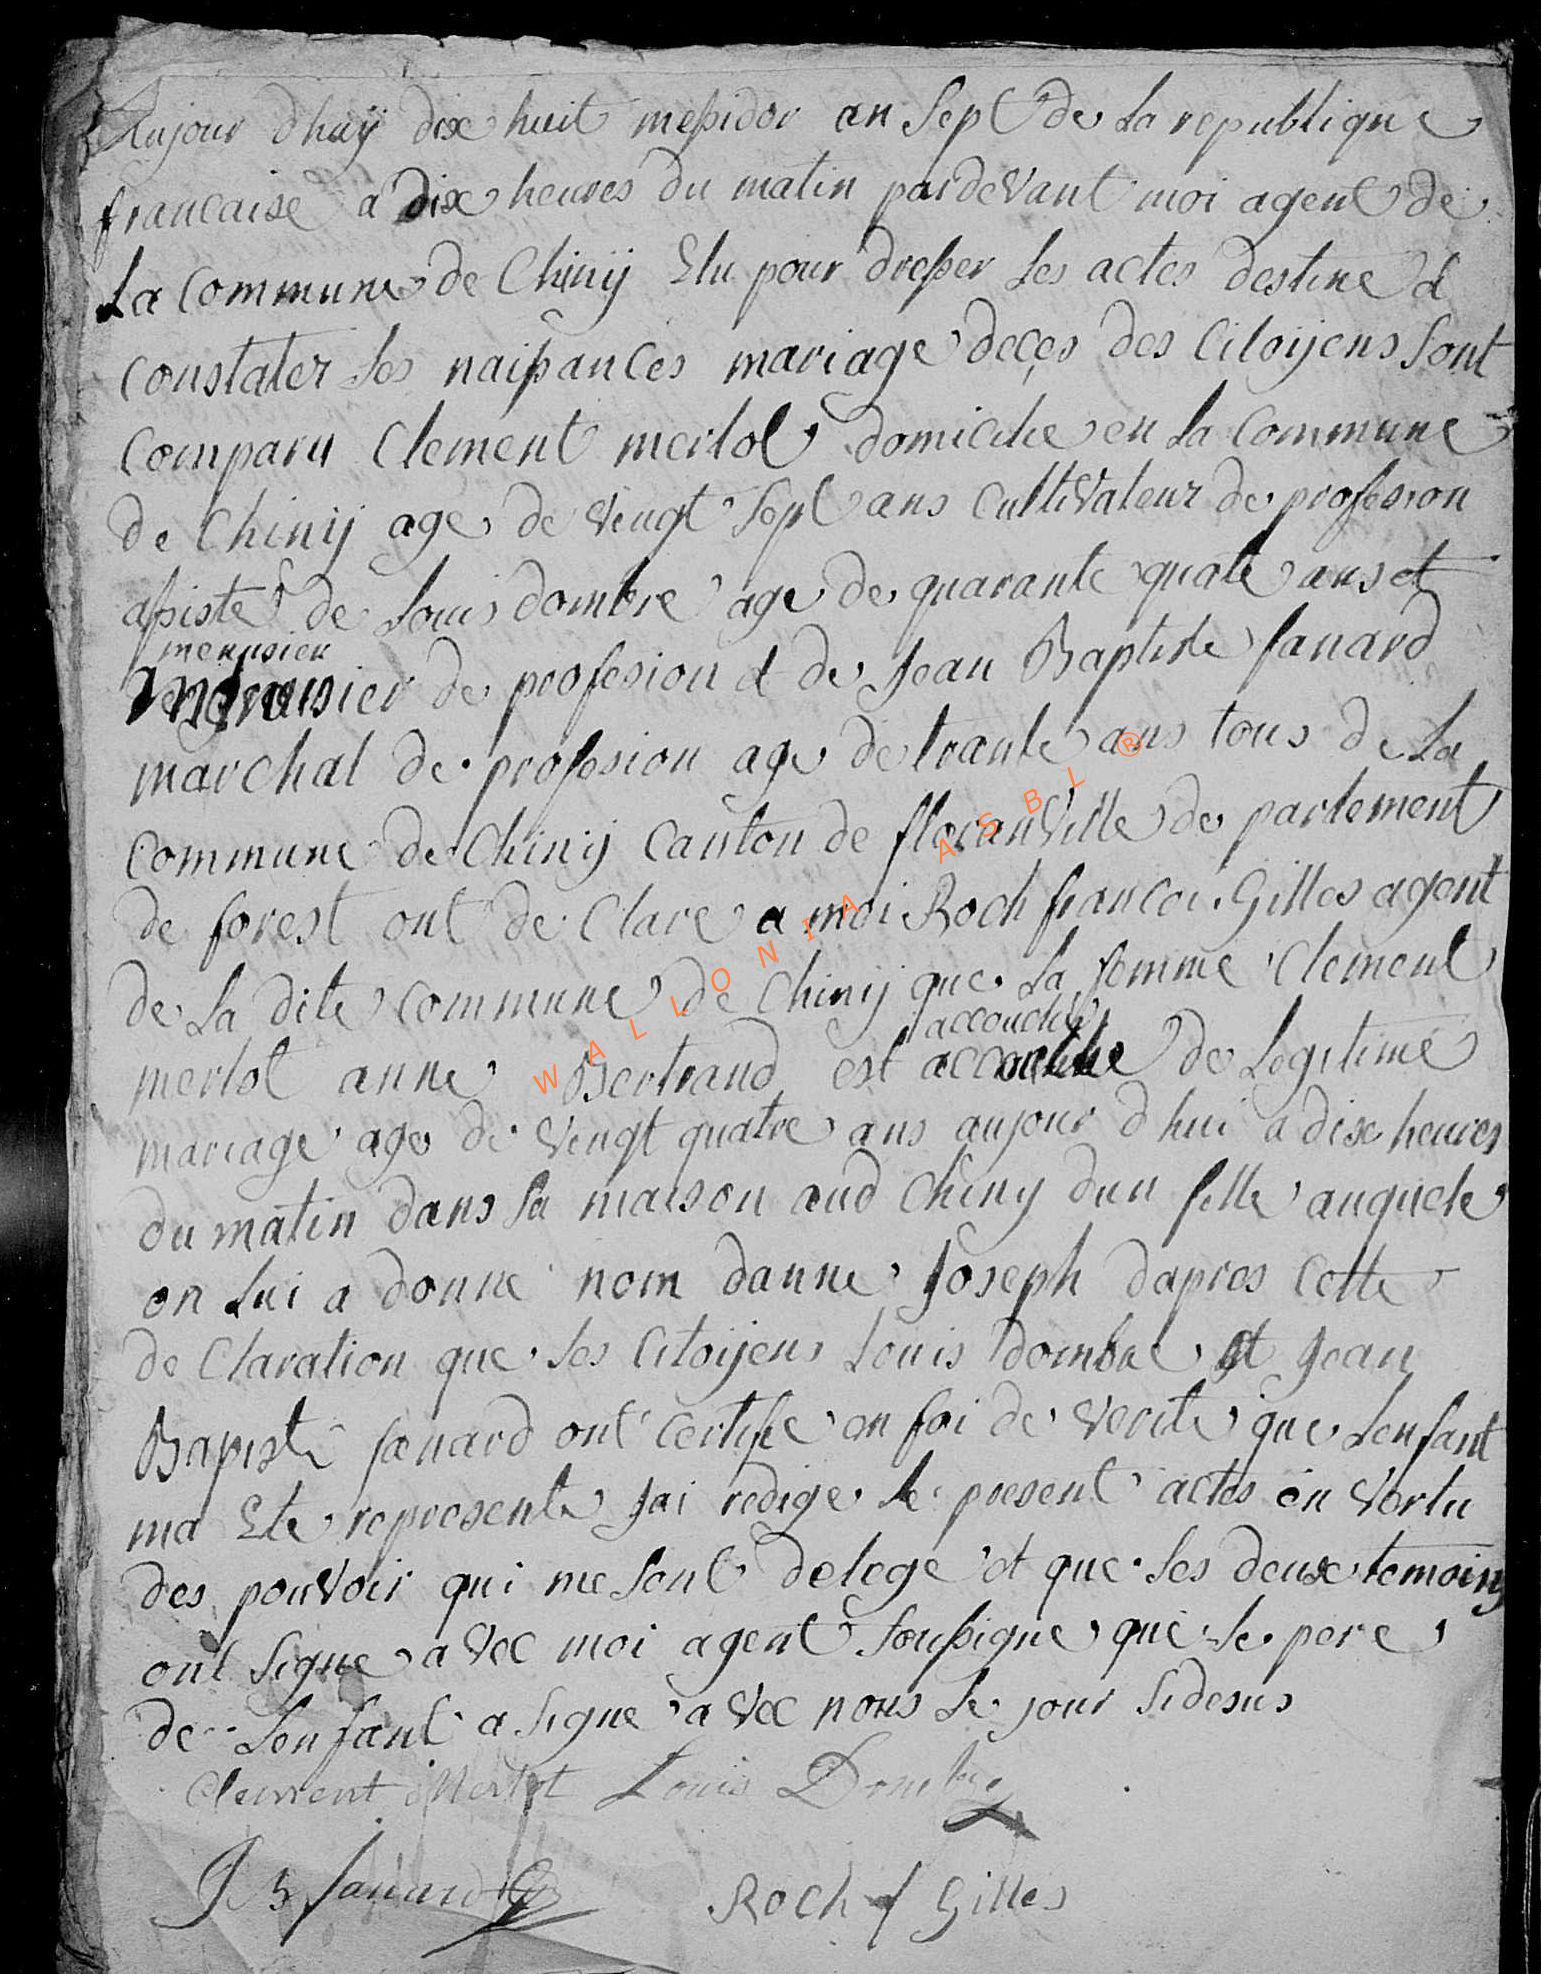 Aujour dhuÿ dix huit messidor an Sept de La republique
francaise a dix heures du matin pardevant moi agent de
La commune de Chinÿ Elu pour dresser Les actes destine a
constater Les naissances mariage deces des Citoÿens Sont
comparu Clement merlot domicilie en La commune
de Chinÿ age de vingt Sept ans cultivateur de profesion
assiste de Louis dombre age de quarante quate ans et
menusier
de profesion et de Jean Baptiste fanard
marchal de profesion age de trante ans tous de La
commune de Chinÿ Canton de floranville de partement
de forest ont de Clare a moi Roch francoi Gilles agent
de La dite commune de Chinÿ que La femme Clement
accouché
merlot anne Bertrand est de Legitime
mariage age de vingt quatre ans aujour d hui a dix heures
du matin dans Sa maison aud Chiny dun fille auquele
on Lui a donne nom danne Joseph dapres Cette
de Claration que Les Citoÿens Louis dombre et Jean
Bapiste fanard ont certifie en foi de verite que Lenfant
ma Ete represente Jai redige Le present actes en vertu
des pouvoir qui me Sont delege et que Les deux temoins
ont Signe avec moi agent Soussigne que Le pere
de Lenfant a Signe avec nous Le jour Sidesus
Clement Merlot Louis Dombre
J B fanard
Roch f Gilles
WALLONIA ASBL ®